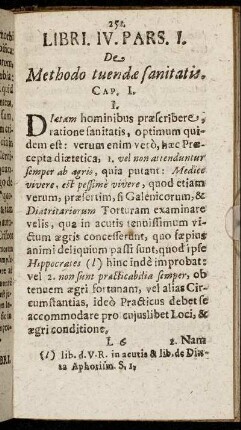 252.
LIBRI. IV. PARS. I.
De
Methodo tuendæ sanitatis.
CAP. I.
I.
Diætam hominibus præscribere,
ratione sanitatis, optimum qui-
dem est: verum enim verò, hæc Præ-
cepta diætetica, 1. vel non attenduntur
semper ab agris, quia putant: Medicè
vivere, est pessimè vivere, quod etiam
verum, præsertim, si Galenicorum, &
Diatritariorum Torturam examinare
velis, qua in acutis tenuissimum vi-
ctum ægris concesserunt, quo sæpius
animi deliquium passi sunt, quod ipse
Hippocrates (l) hinc inde improbat:
vel 2. non sunt practicabilia semper, ob
tenuem ægri fortunam, vel alias Cir-
cumstantias, ideò Practicus debet se
accommodare pro cujuslibet Loci, &
ægri conditione,
L 6 2. Nam
(l) lib. d. V. R. in acutis & lib. de Diæ-
ta Aphorism. S. 1,